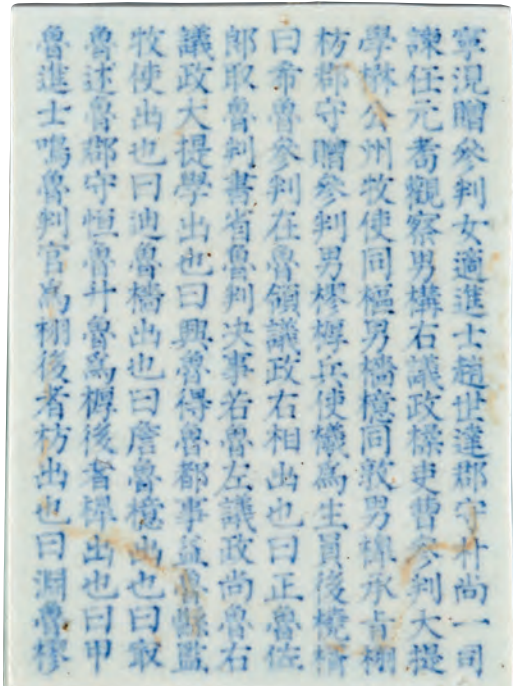 寧況贈參判女適進士趙世達郡守朴尚一司
諫任元耇觀察男構右議政楺吏曹參判大提
學楙公州牧使同樞男橋檍同敦男樟承旨栩
枋郡守贈參判男樛兵使為生員後
曰希魯參判在魯領議政右相出也曰正魯佐
郎取魯判書省魯判決事若魯左議政尚魯右
議政大提學出也曰興魯得魯都事益魯縣監
牧使出也曰迪魯橋出也曰詹魯檍出也曰㝡
魯述魯郡守恒魯斗魯為後者樟出也曰甲
魯進士鳴魯判官為栩後者枋出也曰淵魯樛